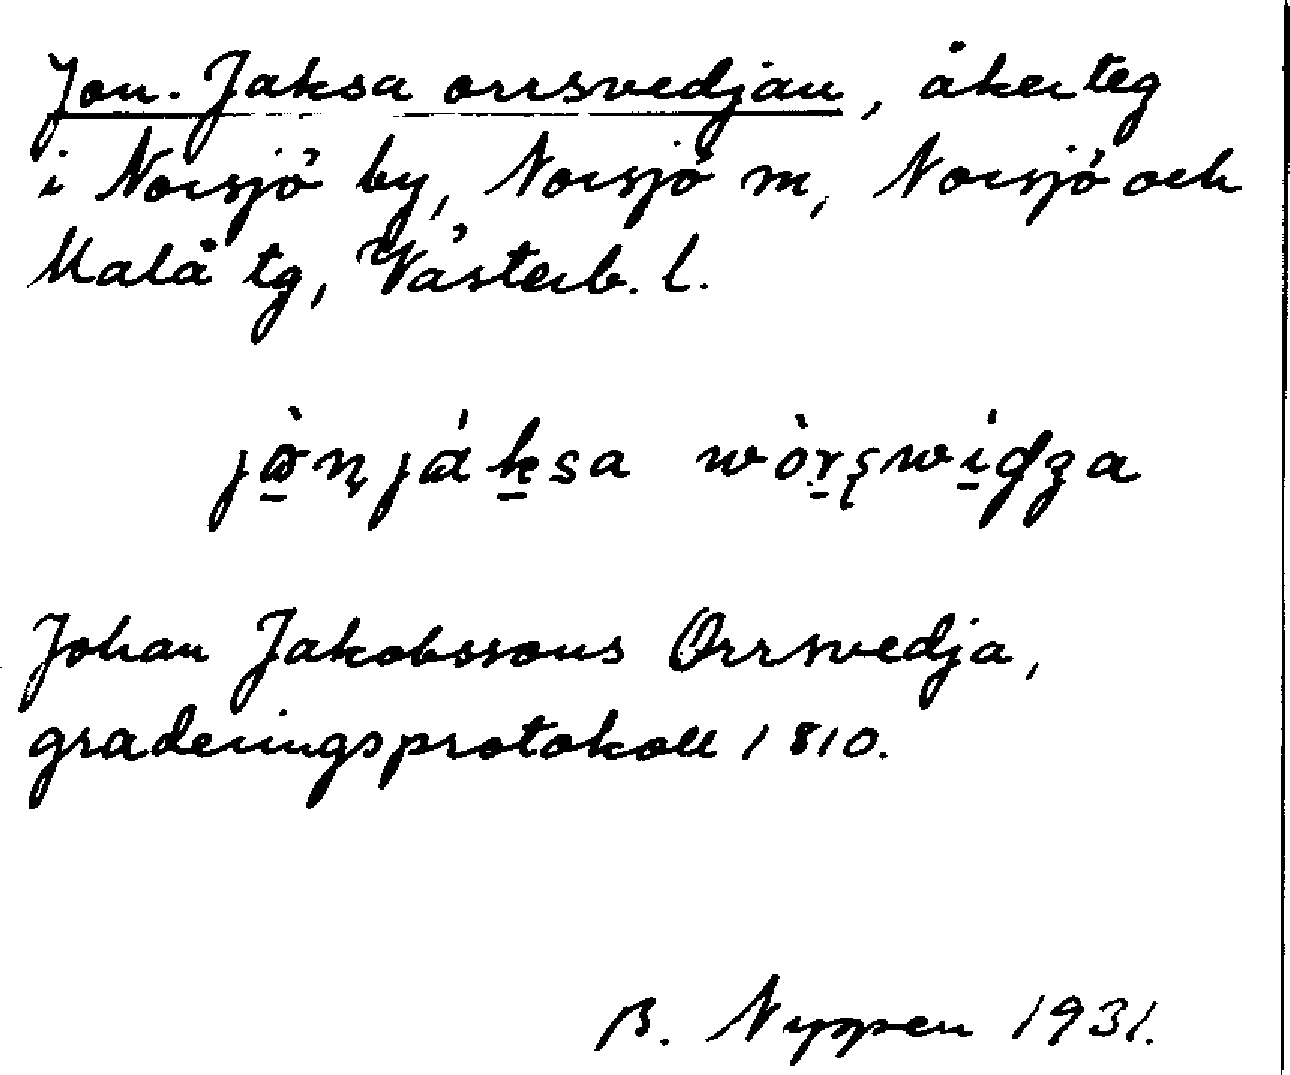 Jon. Jaksa orrsvedjan, åkerteg
i Norsjö by, Norsjö m, Norsjö och
Malå tg, Västerb. l.
jòn̥jáksa wòrswídʒa
Johan Jakobssons Orrsvedja,
graderingsprotokoll 1810.
B. Nyppen 1931.